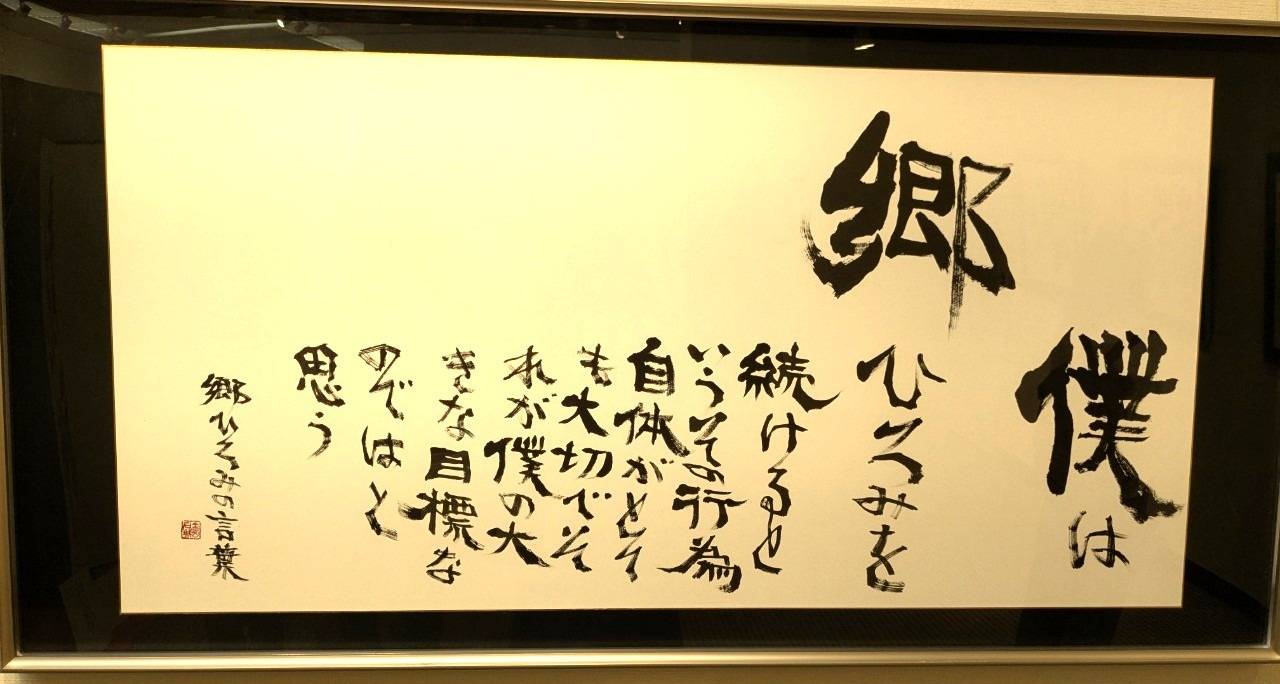 僕は
郷ひろみを
続けると
いうその行為
自体がとて
も大切でそ
れが僕の大
きな目標な
のではと
思う
郷ひろみの言葉